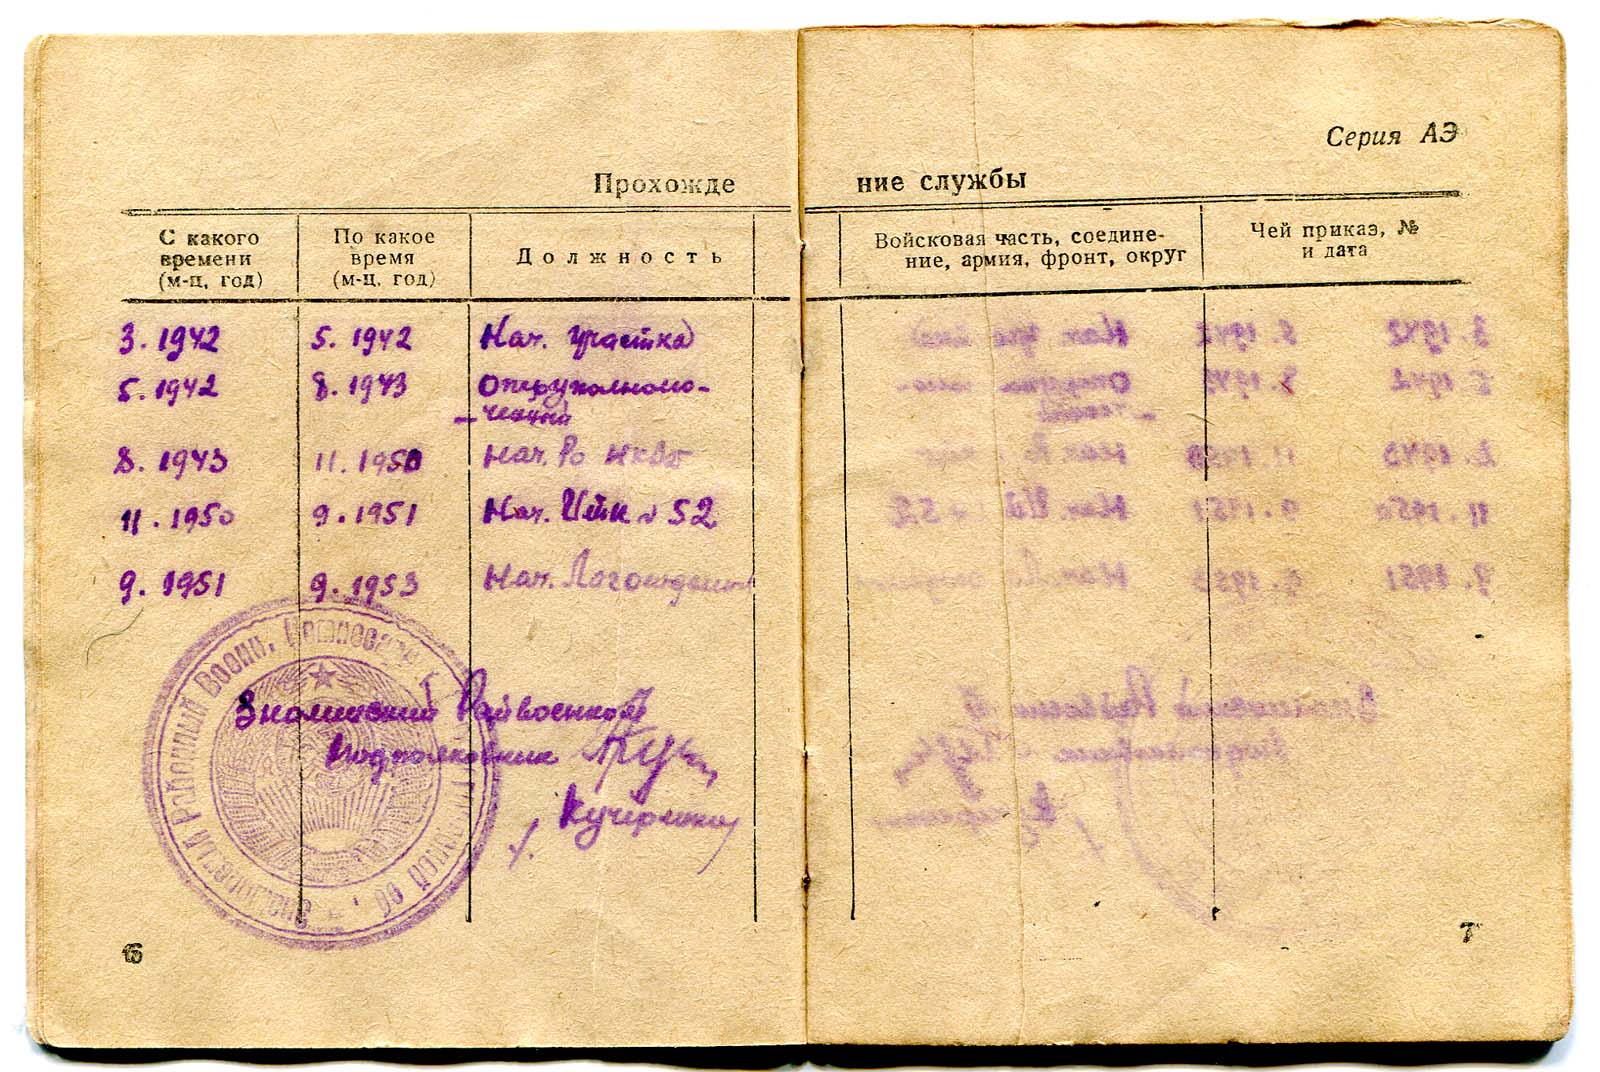 Серия АЭ
Прохожде ние службы
С какого времени (м-ц, год)
По какое время (м-ц, год)
Должность
Войсковая часть, соедине-
ние, армия, фронт, округ
Чей приказ, №
и дата
3. 1942 5. 1942 Нач. участка
5. 1942 8. 1943 Оперуполномо-
-ченный
8. 1943 11. 1950 Нач. Ро НКВД
11. 1950 9. 1951 Нач. 52
9. 1951 9. 1953 Нач.
Районный Военн.
Райвоенком
Подполковник
6
7